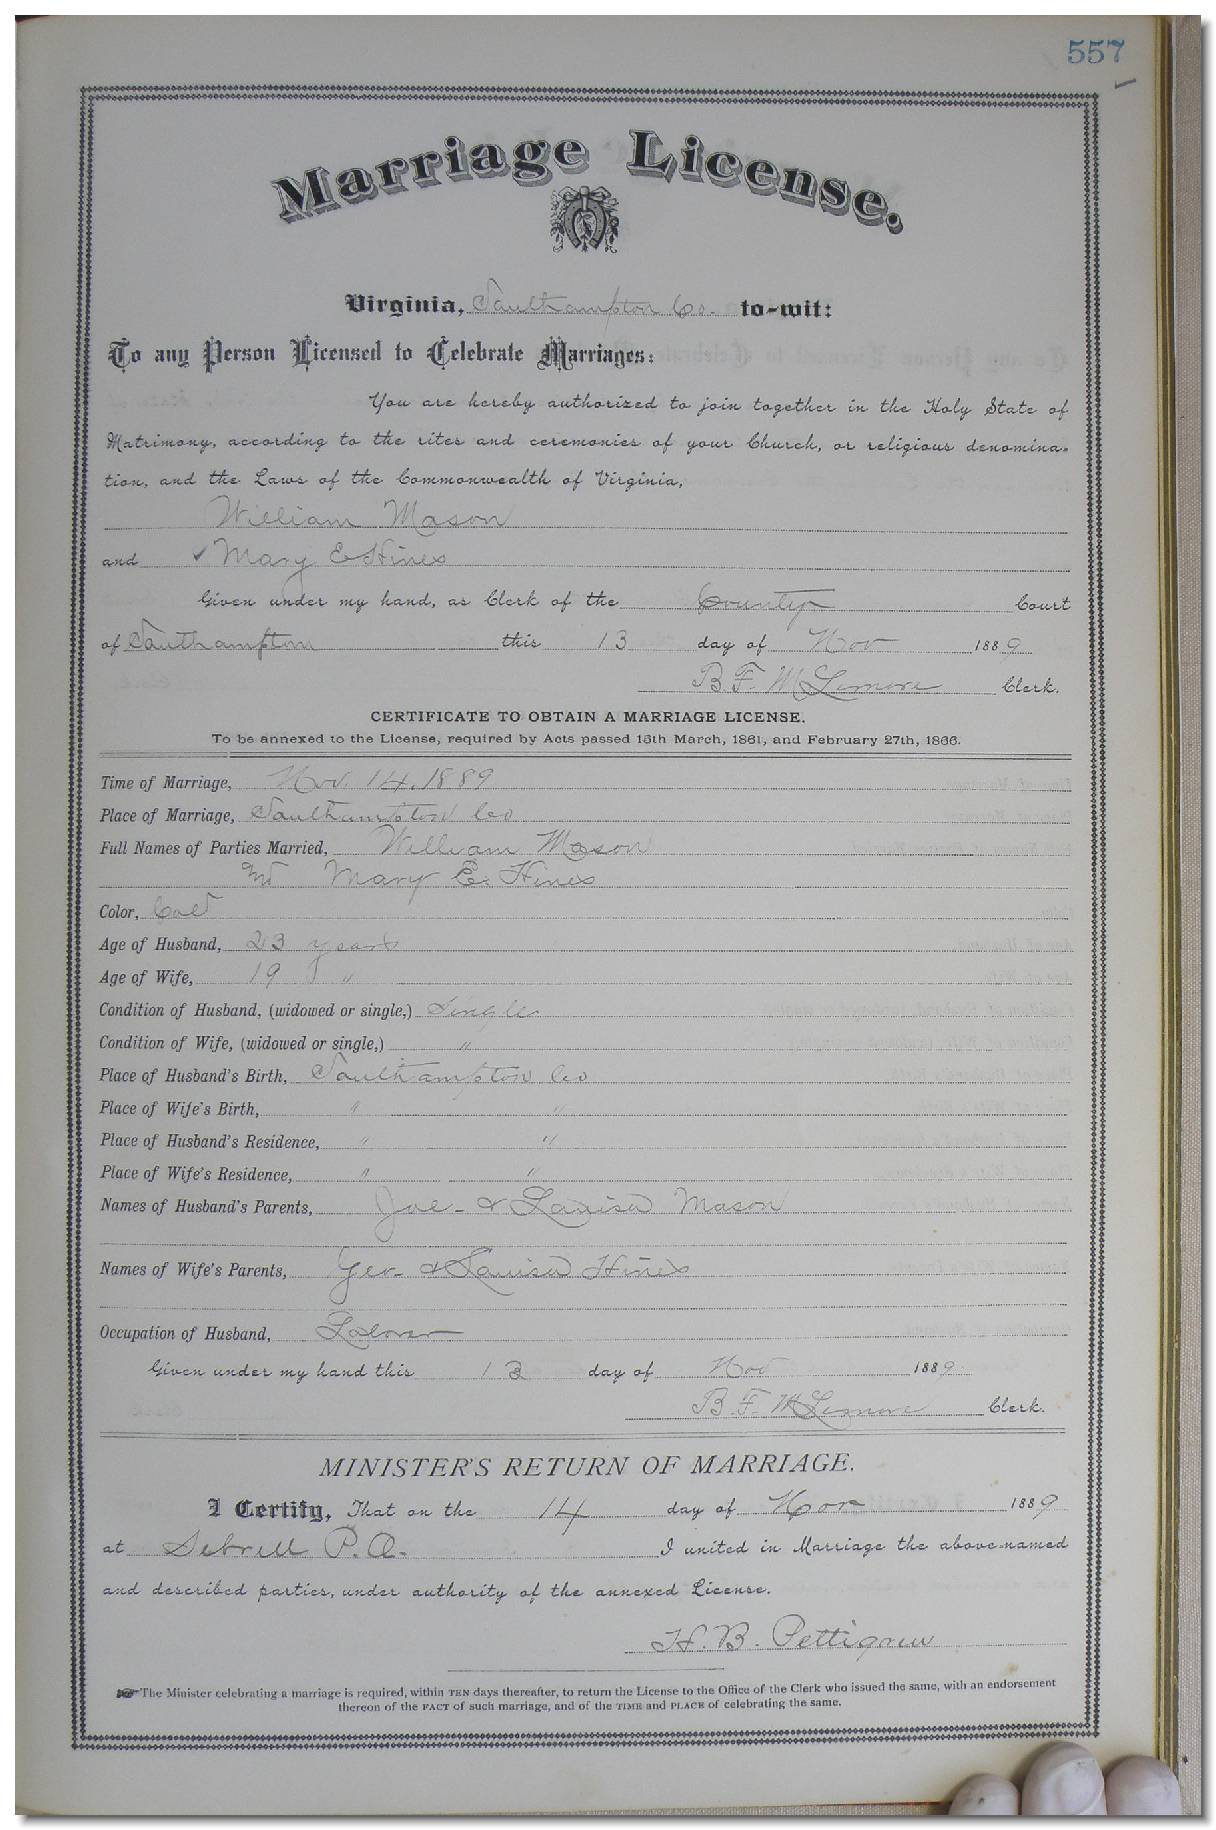 557
Marriage License.
Virginia, Southampton Co. to-wit:
To any Person Licensed to Celebrate Marriages:
You are hereby authorized to join together in the Holy State of
Matrimony, according to the rites and ceremonies of your Church, or religious denomina-
tion, and the Laws of the Commonwealth of Virginia,
William Mason
and Mary E Hines
Given under my hand, as Clerk of the County Court
of Southampton this 13 day of Nov 1889
B. F. McLemore Clerk.
CERTIFICATE TO OBTAIN A MARRIAGE LICENSE.
To be annexed to the License, required by Acts passed 15th March, 1861, and February 27th, 1866.
Time of Marriage, Nov. 14. 1889
Place of Marriage, Southampton Co
Full Names of Parties Married, William Mason
and Mary E. Hines
Color, Cold
Age of Husband, 23 years
Age of Wife, 19 "
Condition of Husband, (widowed or single,) Single
Condition of Wife, (widowed or single,) "
Place of Husband's Birth, Southampton Co
Place of Wife's Birth, " "
Place of Husband's Residence, " "
Place of Wife's Residence, " "
Names of Husband's Parents, Joe & Louisa Mason
Names of Wife's Parents, Geo & Louisa Hines
Occupation of Husband, Laborer
Given under my hand this 13 day of Nov 1889
B. F. McLemore Clerk.
MINISTER'S RETURN OF MARRIAGE.
I Certify, That on the 14 day of Nov 1889
at Sebrell P.O. I united in Marriage the above-named
and described parties, under authority of the annexed License.
H. B. Pettigrew
The Minister celebrating a marriage is required, within TEN days thereafter, to return the License to the Office of the Clerk who issued the same, with an endorsement
thereon of the FACT of such marriage, and of the TIME and PLACE of celebrating the same.